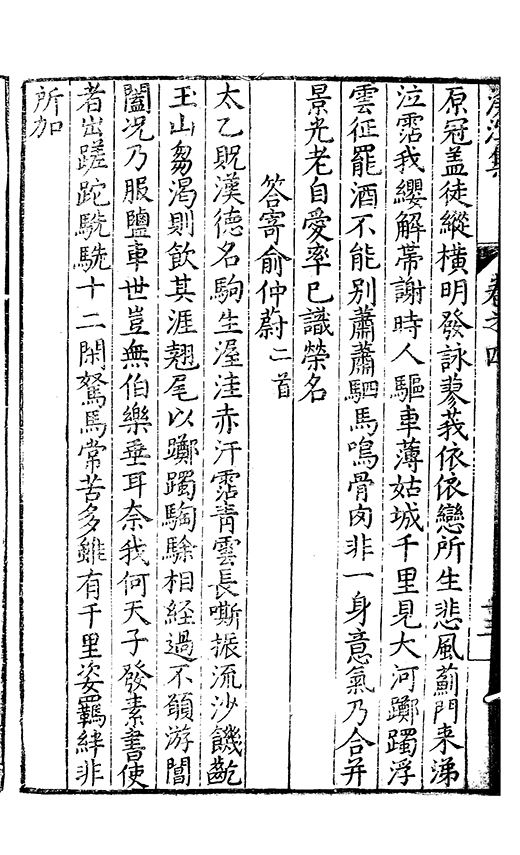 原冠盖徒縱橫明發詠蓼莪依依戀所生悲風薊門来涕
泣霑我纓解帶謝時人驅車薄姑城千里見大河躑躅浮
雲征罷酒不能别蕭蕭駟馬鳴骨肉非一身意氣乃合并
景光老自愛率已識榮名
答寄俞仲蔚二首
太乙貺漢德名駒生渥洼赤汗霑青雲長嘶振流沙饑齕
玉山芻渴則飲其涯翹尾以躑躅騊駼相經過不願游閶
闔况乃服鹽車世豈無伯樂垂耳奈我何天子發素書使
者出蹉跎駪駪十二閑駑馬常苦多雖有千里姿羈絆非
所加
卷之四